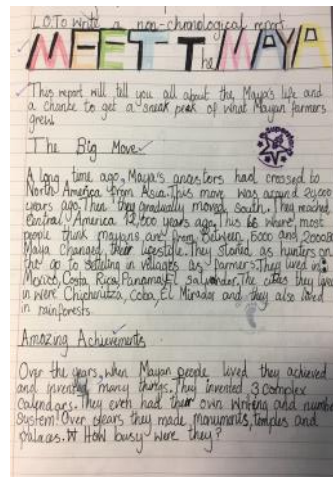 L.O.To write a non-chronological report
MEET The MAYA
This report will tell you all about the Maya's life and
a chance to get a sneak peak of what Mayan farmers
grew.
The Big Move
A long time ago, Maya's ancestors had crossed to
North America from Asia. This move was around 20,000
years ago. Then they gradually moved south. They reached
Central America 12,000 years ago. This is where most
people think mayans are from. Between 6000 and 2000BC
Maya changed their lifestyle. They storied as hunters on
the go to settleing in villages as farmers. They lived in:
Mexico, Costa Rica, Panama, El salvander. The cities they lived
in were Chichenitza, coba, El Mirador and they also lived
in rainforests.
Amazing Achievements
Over the years, when Mayan people lived they achieved
and invented many things. They invented 3 complex
Calendars. They even had their own writing and number
System! Over years they made monuments, temples and
palaces. How busy were they?